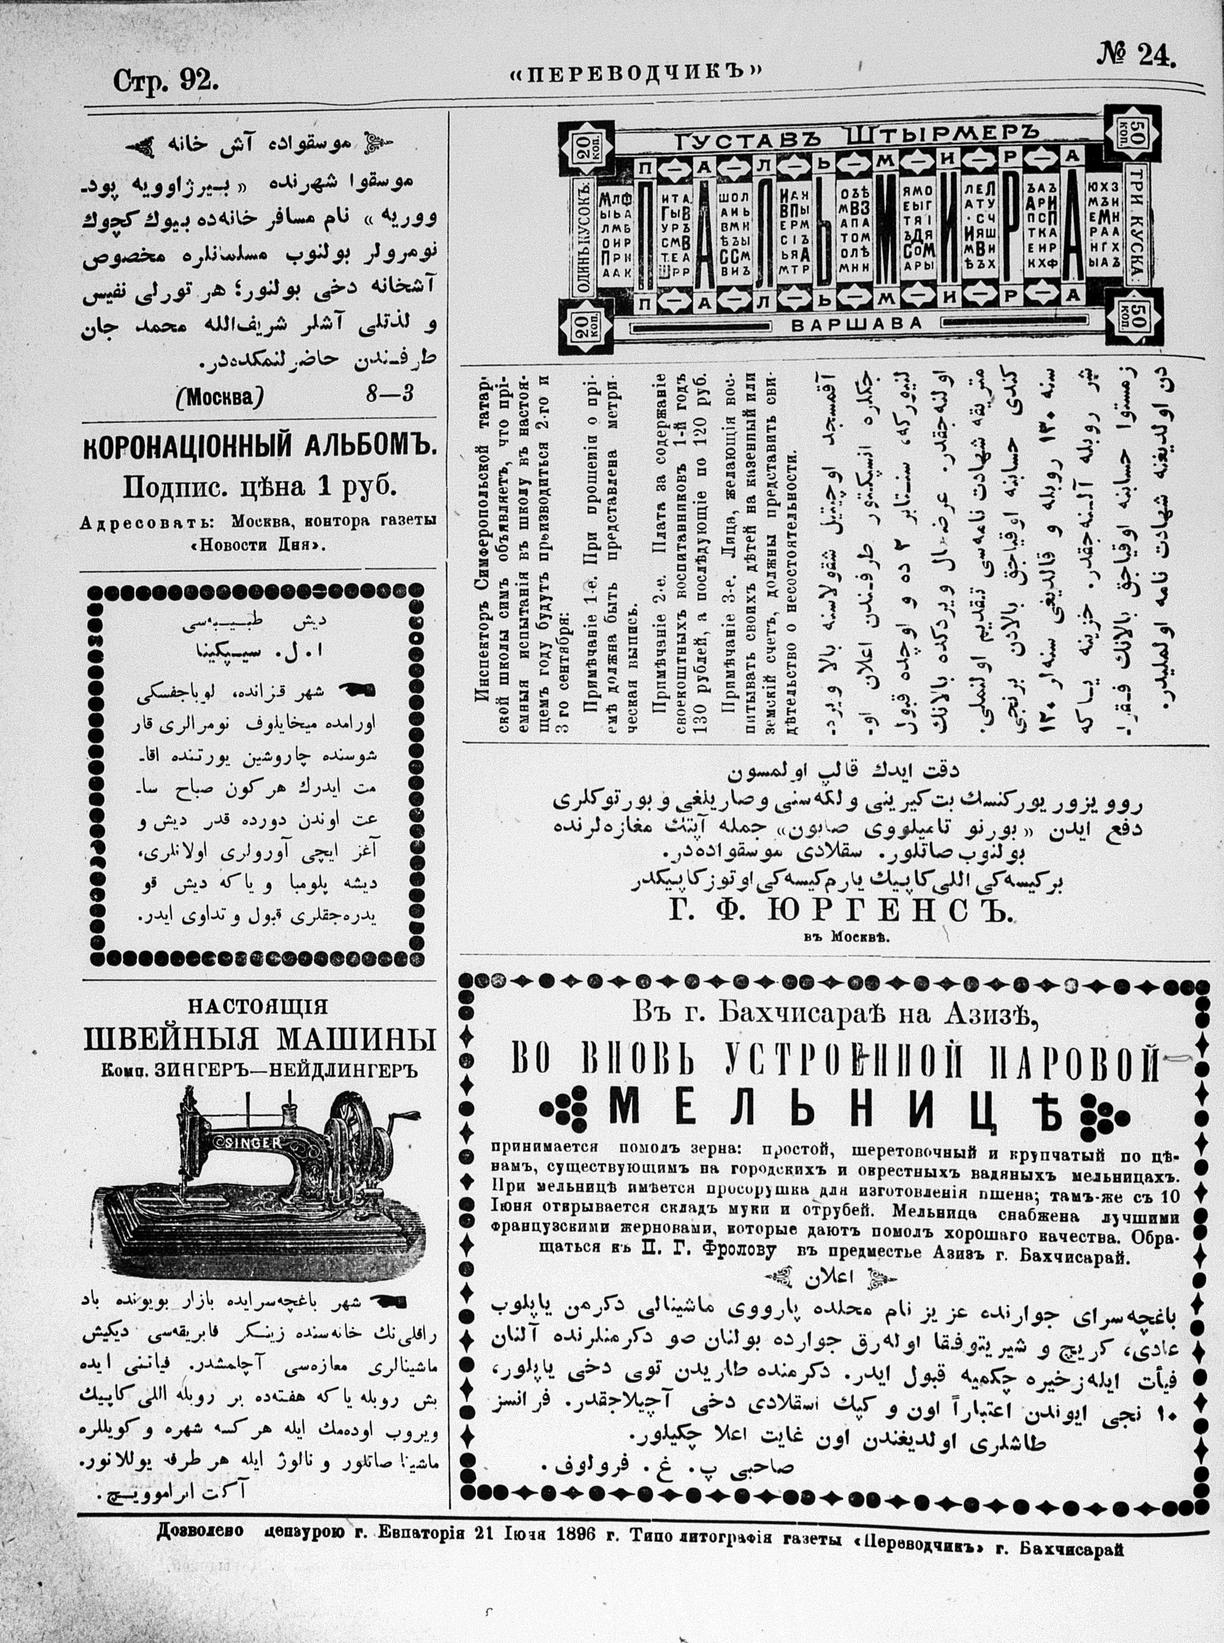 Стр. 92.
«ПЕРЕВОДЧИКЪ»
№ 24.
موسقواده آش خانه
موسقوا شهرنده « بیرژاوویه پود-
ووریه » نام مسافر خانه‌ده بیوك كچوك
نومرولر بولنوب مسلمانلره مخصوص
آشخانه دخی بولنور؛ هر تورلی نفیس
و لذتلی آشلر شریف‌الله محمد جان
طرفندن حاضرلنمكده‌در.
(Москва) 8—3
КОРОНАЦІОННЫЙ АЛЬБОМЪ.
Подпис. цѣна 1 руб.
Адресовать: Москва, контора газеты
«Новости Дня».
دیش طبیبه‌سی
ا. ل. سیپكینا
شهر قزانده، لوباجفسكی
اورامده میخایلوف نومرالری قار
شوسنده چاروشین یورتنده اقا-
مت ایدرك هر كون صباح سا-
عت اوندن دورده قدر دیش و
آغز ایچی آورولری اولانلری،
دیشه پلومبا و یاكه دیش قو
یدره‌جقلری قبول و تداوی ایدر.
НАСТОЯЩІЯ
ШВЕЙНЫЯ МАШИНЫ
Комп. ЗИНГЕРЪ—НЕЙДЛИНГЕРЪ
SINGER
شهر باغچه‌سرایده بازار بویونده باد
راقلی‌نك خانه‌سنده زینكر فابریقه‌سی دیكیش
ماشینالری مغازه‌سی آچلمشدر. فیاتنی ایده
بش روبله یا كه هفته‌ده بر روبله اللی كاپیك
ویروب اوده‌مك ایله هر كسه شهره و كویللره
ماشینا صاتلور و نالوژ ایله هر طرفه یوللانور.
آكت ابراموویچ.
ГУСТАВЪ ШТЫРМЕРЪ
20 коп.
50 коп.
ОДИНЪ КУСОКЪ:
ТРИ КУСКА:
ПАЛЬМИРА
ПАЛЬМИРА
ПАЛЬМИРА
20 коп.
50 коп.
ВАРШАВА
Инспекторъ Симферопольской татар-
ской школы симъ объявляетъ, что прі-
емныя испытанія въ школу въ настоя-
щемъ году будутъ производиться 2-го и
3 го сентября:
Примѣчаніе 1-е. При прошеніи о прі-
емѣ должна быть представлена метри-
ческая выпись.
Примѣчаніе 2-е. Плата за содержаніе
своекоштныхъ воспитанниковъ 1-й годъ
130 рублей, а послѣдующіе по 120 руб.
Примѣчаніе 3-е. Лица, желающія вос-
питывать своихъ дѣтей на казенный или
земскій счетъ, должны представить сви-
дѣтельство о несостоятельности.
آقمسجد اوچیتیل شقولاسنه بالا ویرد-
جكلره انسپكتور طرفندن اعلان او-
لنیوركه، سنتابر ٢ ده و اوچده قبول
اولنه‌جقدر. عرضحال ویردكده بالانك
متریقه شهادت نامه‌سی تقدیم اولنملی.
كندی حسابنه اوقیاجق بالادن برنجی
سنه ١٣٠ روبله و قالدیغی سنه‌لر ١٢٠
شر روبله آلنه‌جقدر. خزینه یا كه
زمستوا حسابنه اوقیاجق بالانك فقرا-
دن اولدیغنه شهادت نامه اولملیدر.
دقت ایدك قالب اولمسون
روویزور یوركنسك بت كیرینی و لكه‌سنی و صاریلغی و بورتوكلری
دفع ایدن « بورنو تامیلووی صابون» جمله آپتك مغازه‌لرنده
بولنوب صاتلور. سقلادی موسقواده‌در.
بر كیسه‌كی اللی كاپیك یارم كیسه‌كی اوتوز كاپیكدر
Г. Ф. ЮРГЕНСЪ.
въ Москвѣ.
Въ г. Бахчисараѣ на Азизѣ,
ВО ВНОВЬ УСТРОЕННОЙ ПАРОВОЙ
МЕЛЬНИЦѢ
принимается помолъ зерна: простой, шеретовочный и крупчатый по цѣ-
намъ, существующимъ на городскихъ и окрестныхъ вадяныхъ мельницахъ.
При мельницѣ имѣется просорушка для изготовленія пшена; тамъ-же съ 10
Іюня открывается складъ муки и отрубей. Мельница снабжена лучшими
французскими жерновами, которые даютъ помолъ хорошаго качества. Обра-
щаться къ П. Г. Фролову въ предместье Азизъ г. Бахчисарай.
اعلان
باغچه‌سرای جوارنده عزیز نام محلده پارووی ماشینالی دكرمن یاپلوب
عادی، كریچ و شیریتوفقا اوله‌رق جوارده بولنان صو دكرمنلرنده آلنان
فیأت ایله زخیره چكمیه قبول ایدر. دكرمنده طاریدن توی دخی یاپلور،
١٠ نجی ایوندن اعتباراً اون و كپك اسقلادی دخی آچیلاجقدر. فرانسز
طاشلری اولدیغندن اون غایت اعلا چكیلور.
صاحبی پ. غ. فرولوف.
Дозволено цензурою г. Евпаторія 21 Іюня 1896 г. Типо литографія газеты «Переводчикъ» г. Бахчисарай